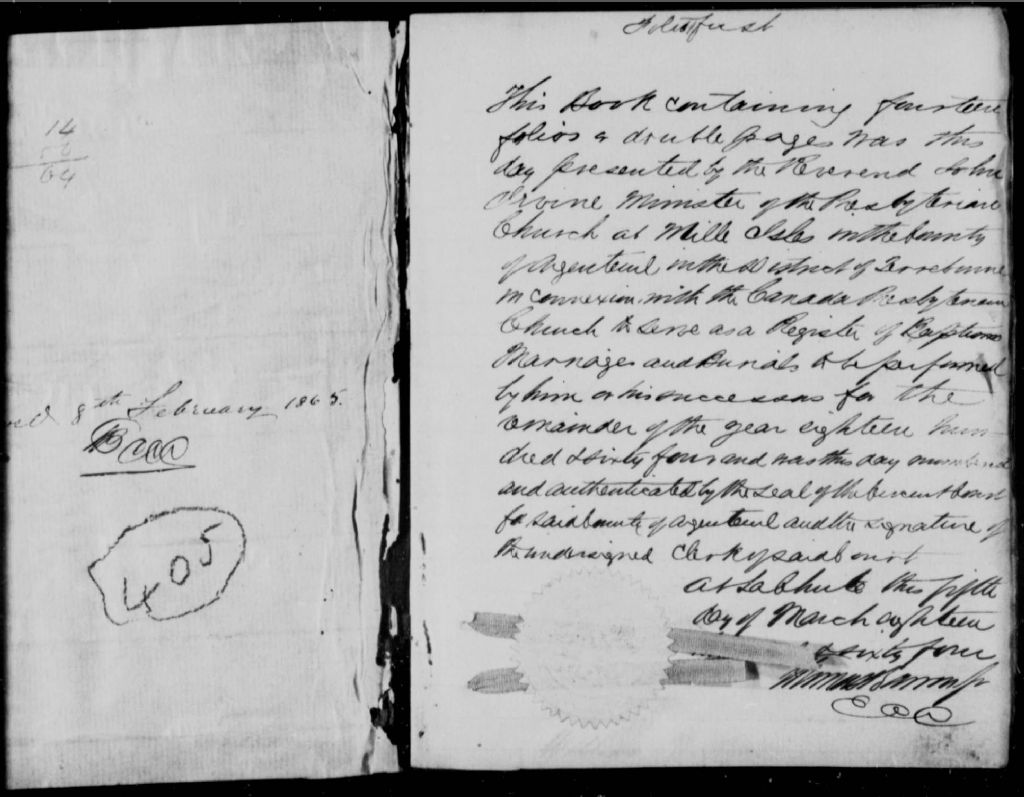 14
50
64
8th February 1865.
405
Folio first
This Book containing fourteen
folios or double pages was this
day presented by the Reverend John
Irvine Minister of the Presbyterian
Church at Mille Isles in the County
of Argenteuil in the District of Terrebonne
in connexion with the Canada Presbyterian
Church to serve as a Register of Baptisms
Marriages and Burials to be performed
by him or his successors for the
remainder of the year eighteen hun-
dred & sixty four and was this day numbered
and authenticated by the seal of the Circuit Court
for said County of Argenteuil and the signature of
the undersigned Clerk of said Court
at Lachute this fifth
day of March eighteen
& sixty four